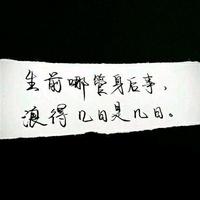 生前哪管身后事、
浪得几日是几日。